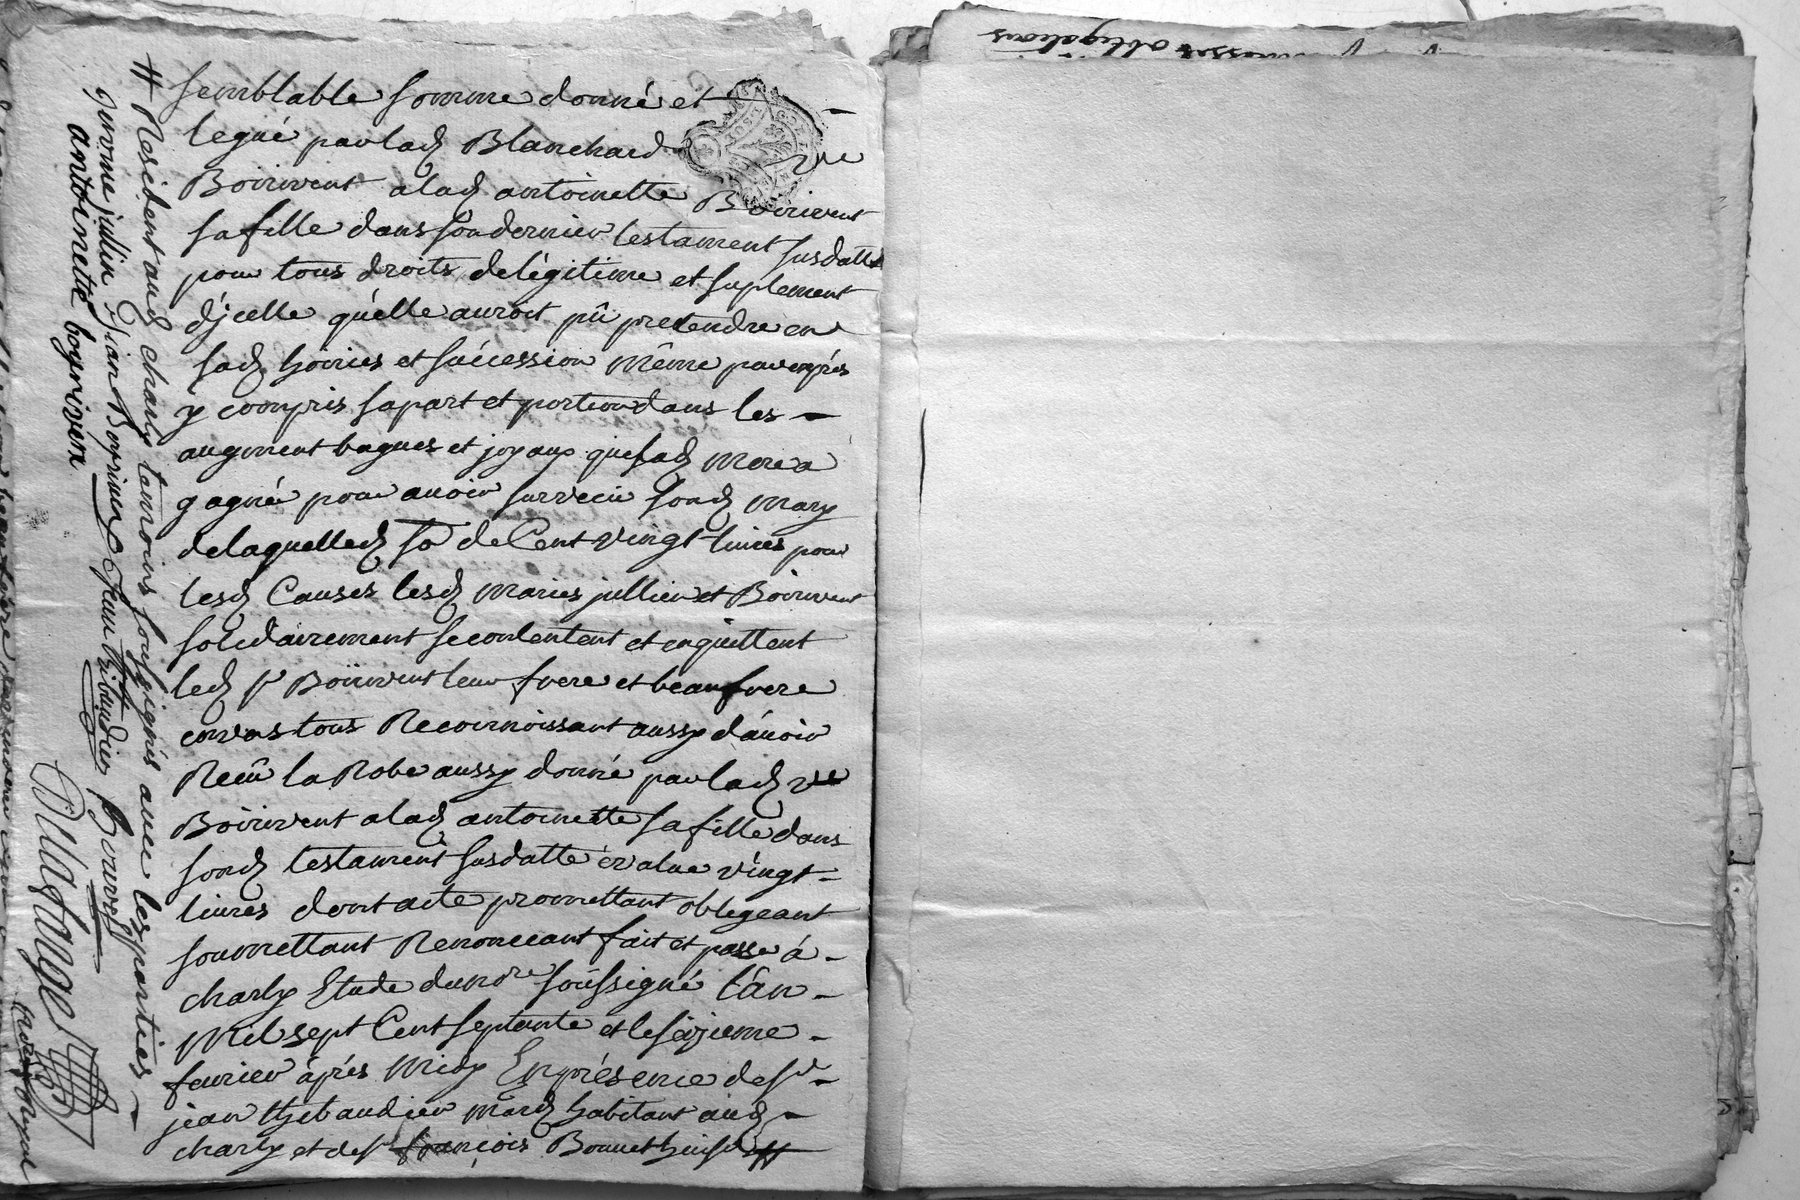 semblable somme donné et
legué par lad Blanchard vve
Boirivent a lad antoinette Boirivent
sa fille dans son dernier testament susdatté
pour tous droits de légitime et suplement
d'jcelle qu'elle auroit pû pretendre en
sad hoiries et succession même par exprés
y compris sa part et portion dans les
augment bagues et joyaux que sad mere a
gagné pour avoir survecu sond mary
de laquelled so de Cent vingt livres pour
lesd Causes lesd maries jullien et Boirivent
solidairement se contentent et enquittent
led sr Boirivent leur frere et beaufrere
envers tous Reconnoissant aussy d'avoir
Recû la Robe aussy donné par lad vve
Boirivent a lad antoinette sa fille dans
sond testament susdatté évalué vingt
livres dont acte promettant obligeant
soumettant Renonceant fait et passé à
charly Etude du nore soussigné l'an
Mil sept Cent septante et le seizieme
fevrier aprés Midy En présence de sr
jean thibaudier mard habitant aud
charly et de sr françois Bonnet huissr #
# Residentaud charly temoins soussignés avec les parties
jerome jullien jean Boyriven Jean Thibaudier Bonnet
antoinette boyriven
Dugfauge
nore Royal
obligations